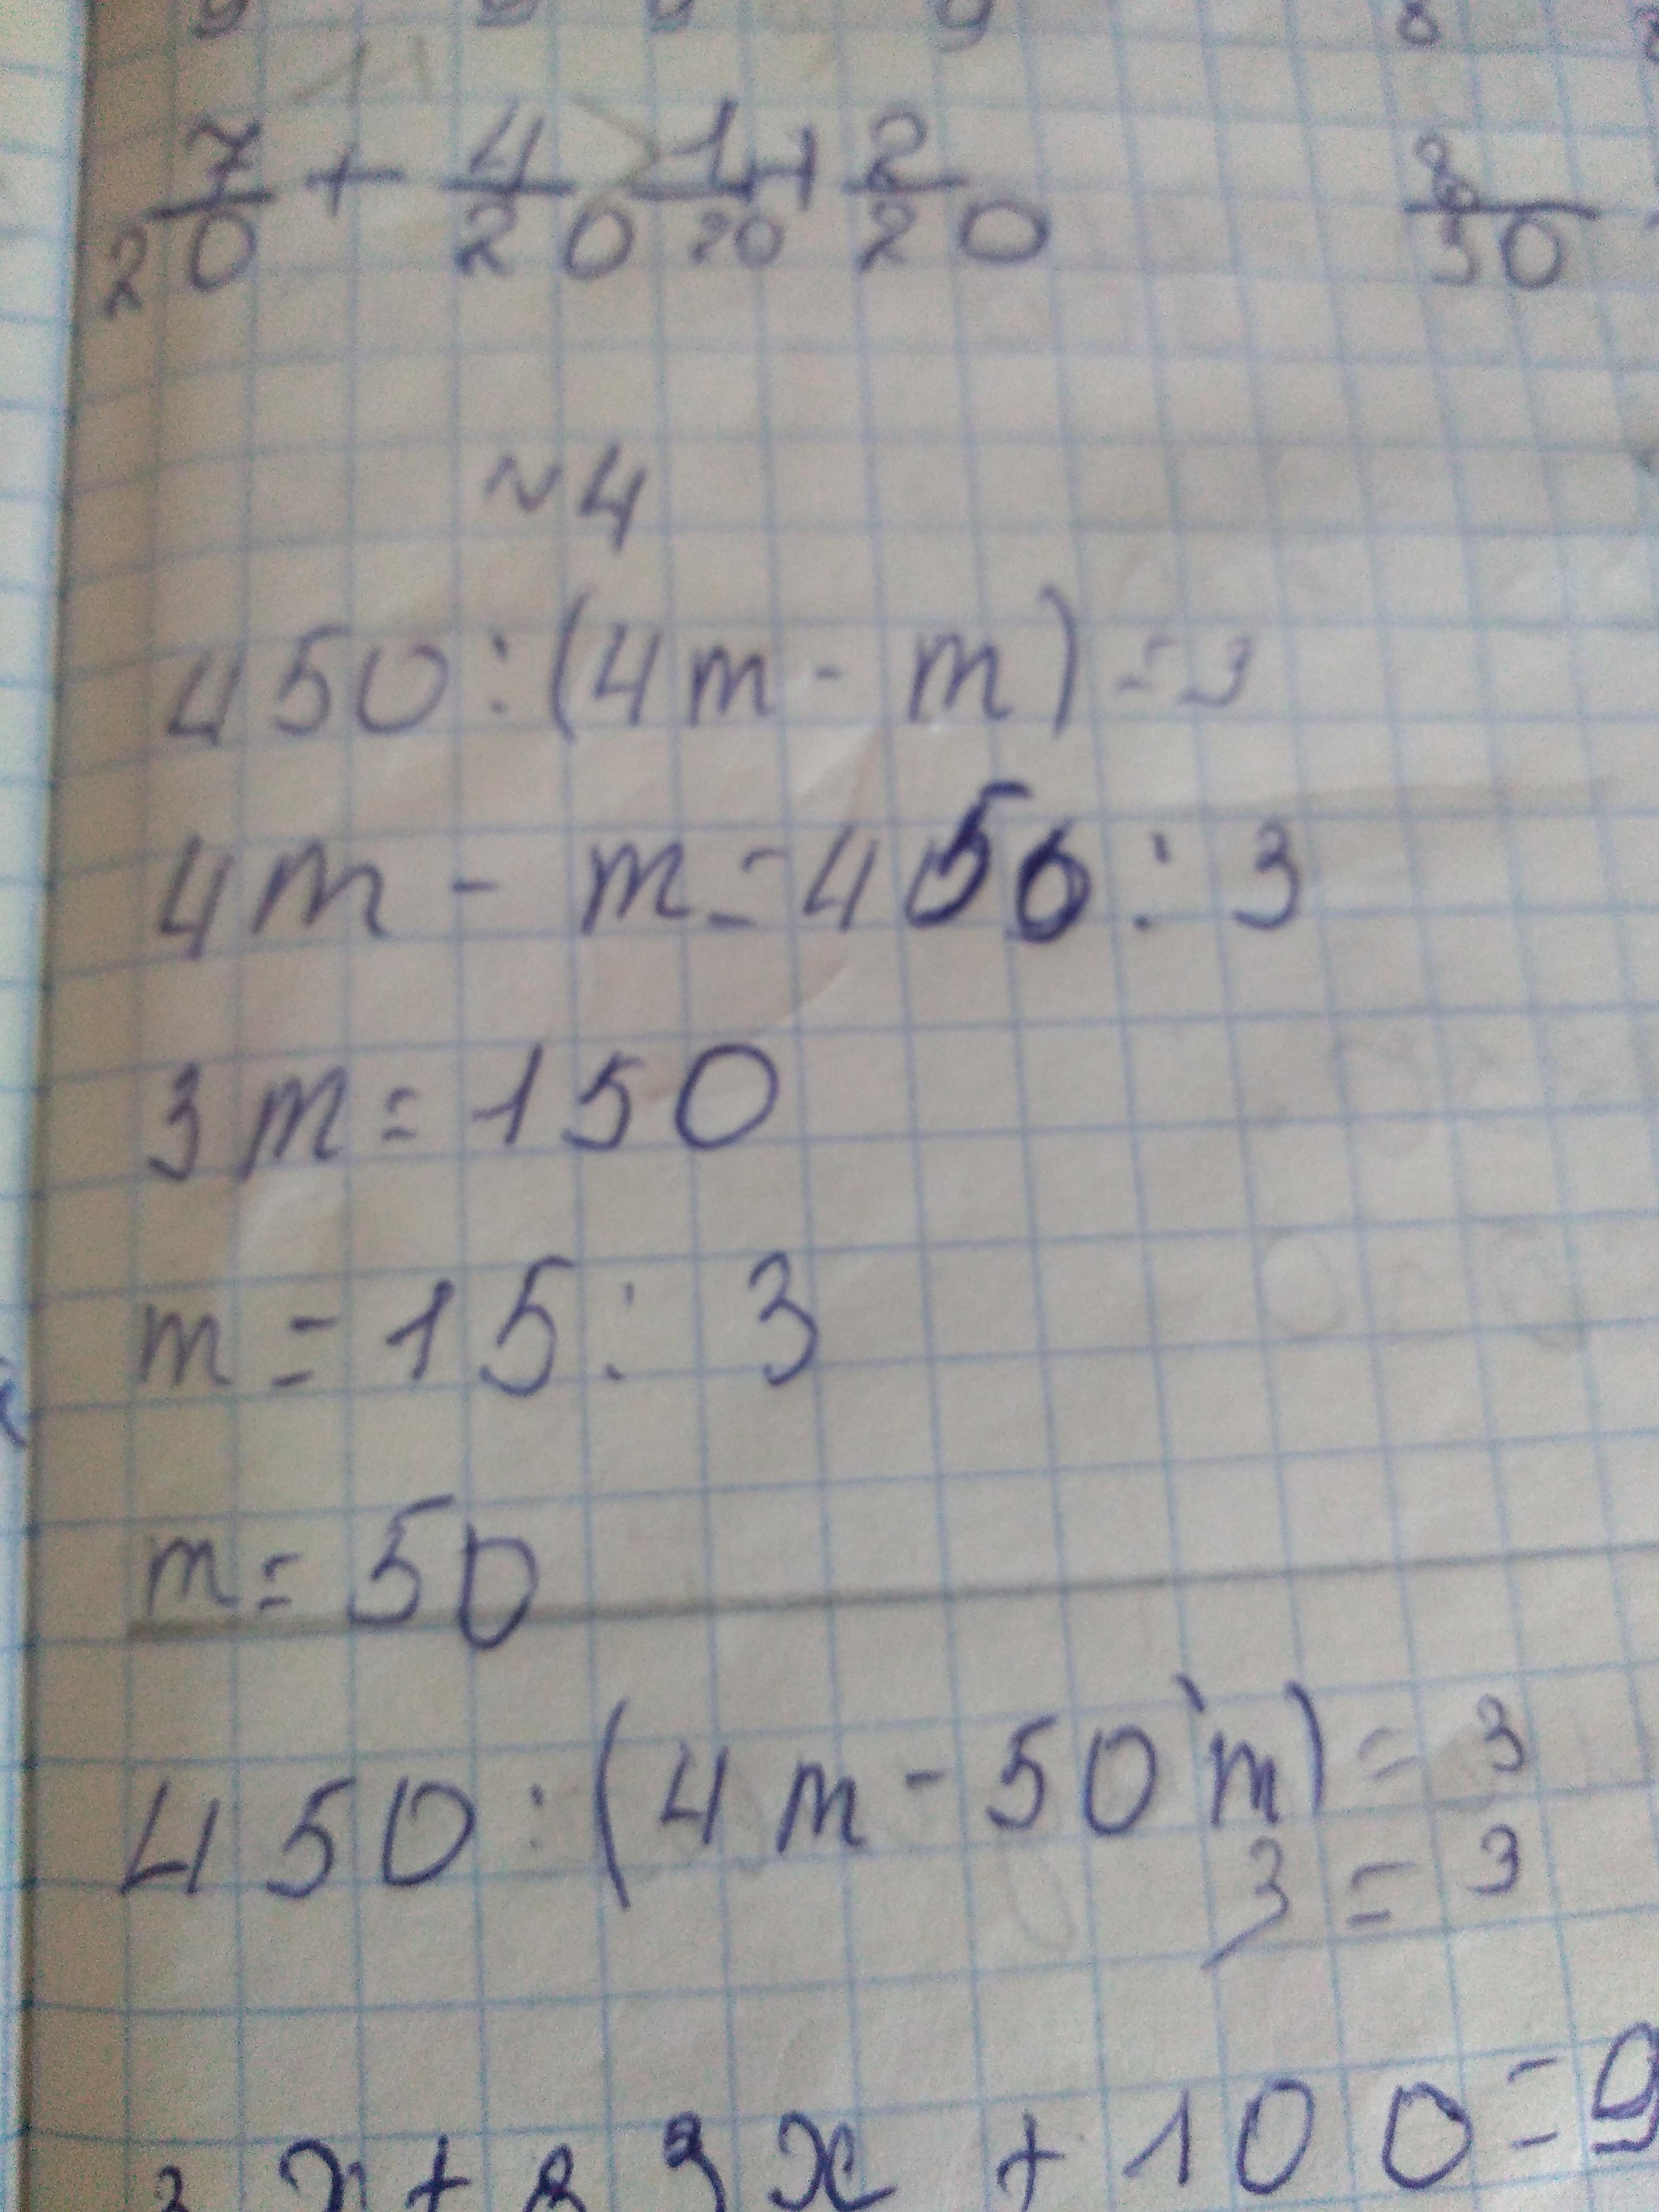 7/20 + 4/20 > 1/20 + 2/20
8/50
№4
450:(4m - m) = 3
4m - m = 450 : 3
3m = 150
m = 15 : 3
m = 50
450 : (4m - 50m) = 3
3 = 3
x + 100 = 9